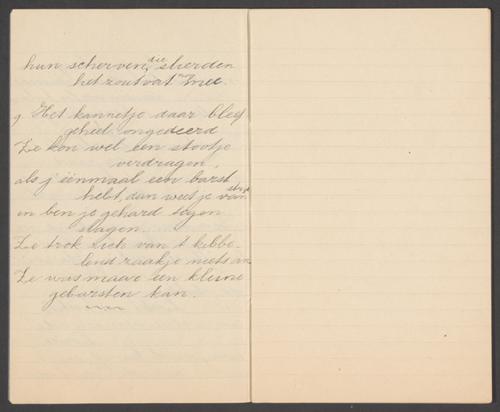 hun scherven, die stierden
het zoutvat mee.
9. Het kannetje daar bleef
geheel ongedeerd
Ze kon wel een stootje
verdragen,
als j' éénmaal een barst
hebt, dan weet je
en ben je gehard tegen
slagen.
Ze trok zich van 't kibbe-
lend raakje niets an
Ze was maar een kleine
gebarsten kan.